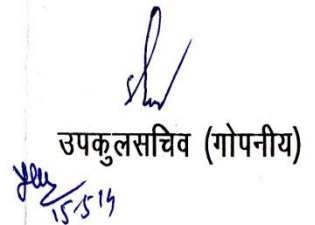 उपकुलसचिव (गोपनीय)
15.5.14